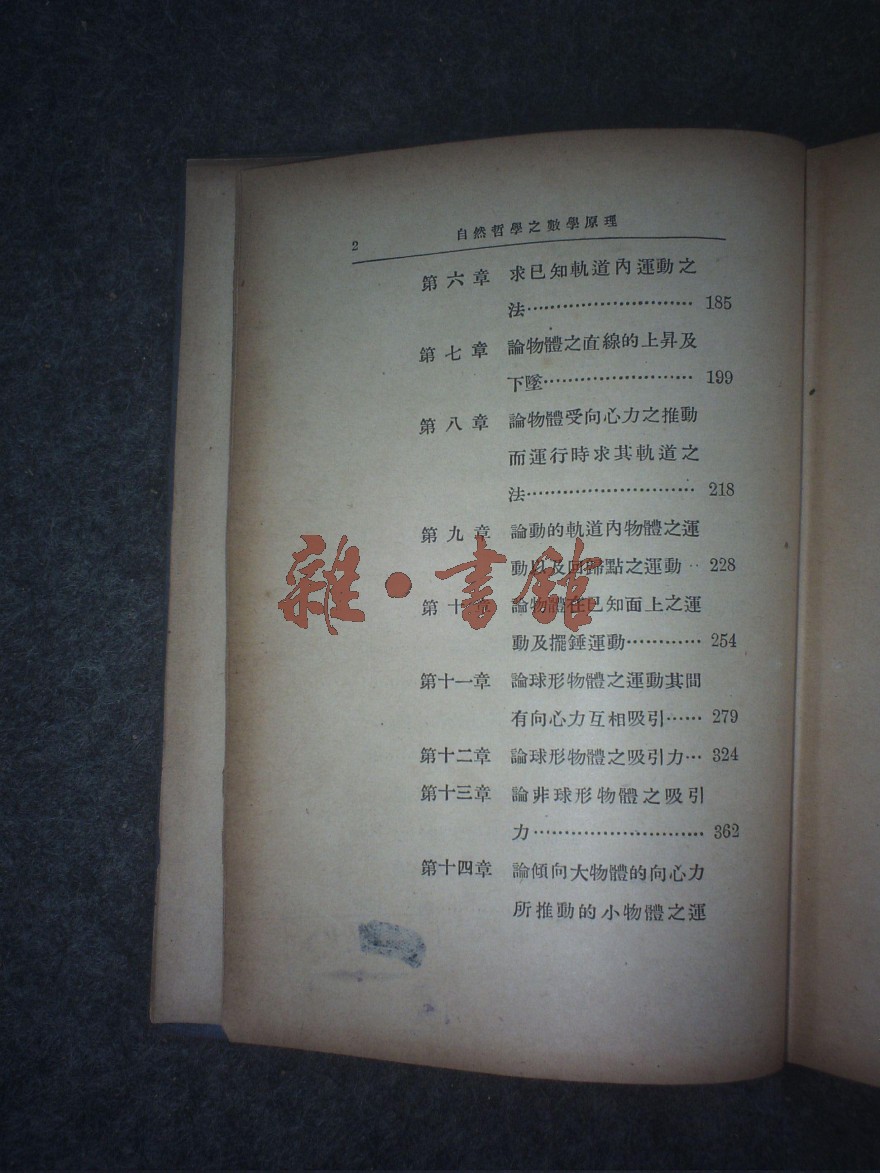 2
自然哲學之數學原理
第六章 求已知軌道內運動之
法⋯⋯⋯⋯⋯⋯⋯⋯⋯ 185
第七章 論物體之直線的上昇及
下墜⋯⋯⋯⋯⋯⋯⋯⋯ 199
第八章 論物體受向心力之推動
而運行時求其軌道之
法⋯⋯⋯⋯⋯⋯⋯⋯⋯ 218
第九章 論動的軌道內物體之運
動以及回歸點之運動⋯ 228
第十章 論物體在已知面上之運
動及擺錘運動⋯⋯⋯⋯ 254
第十一章 論球形物體之運動其間
有向心力互相吸引⋯⋯ 279
第十二章 論球形物體之吸引力⋯ 324
第十三章 論非球形物體之吸引
力⋯⋯⋯⋯⋯⋯⋯⋯⋯ 362
第十四章 論傾向大物體的向心力
所推動的小物體之運
雜·書館